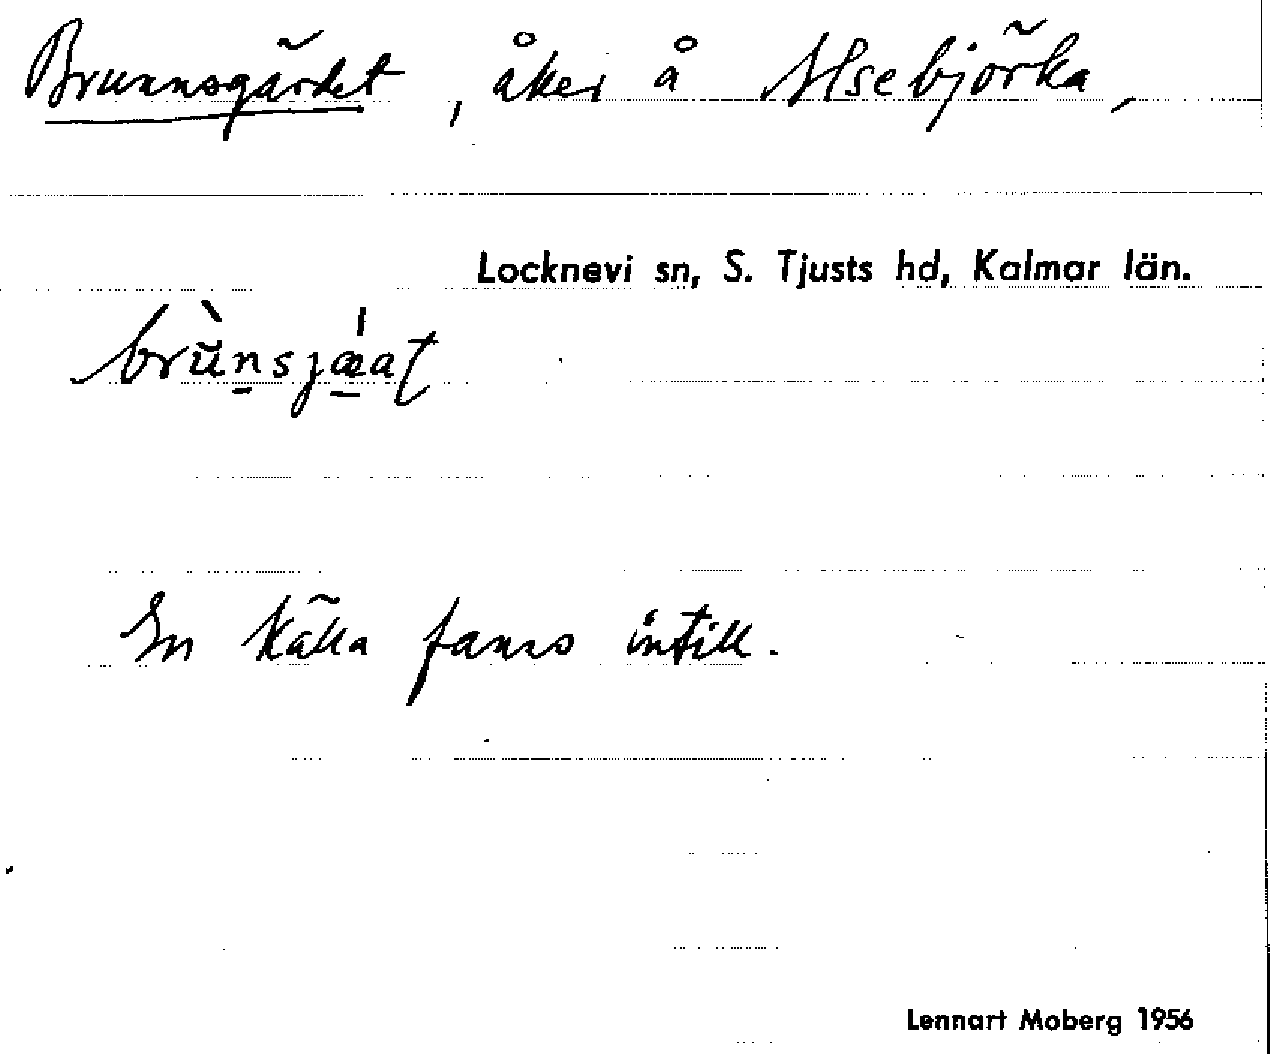 Brunnsgärdet, åker å Alsebjörka,
Locknevi sn, S. Tjusts hd, Kalmar län.
brùnsjæ̍at
En källa fanns intill.
Lennart Moberg 1956